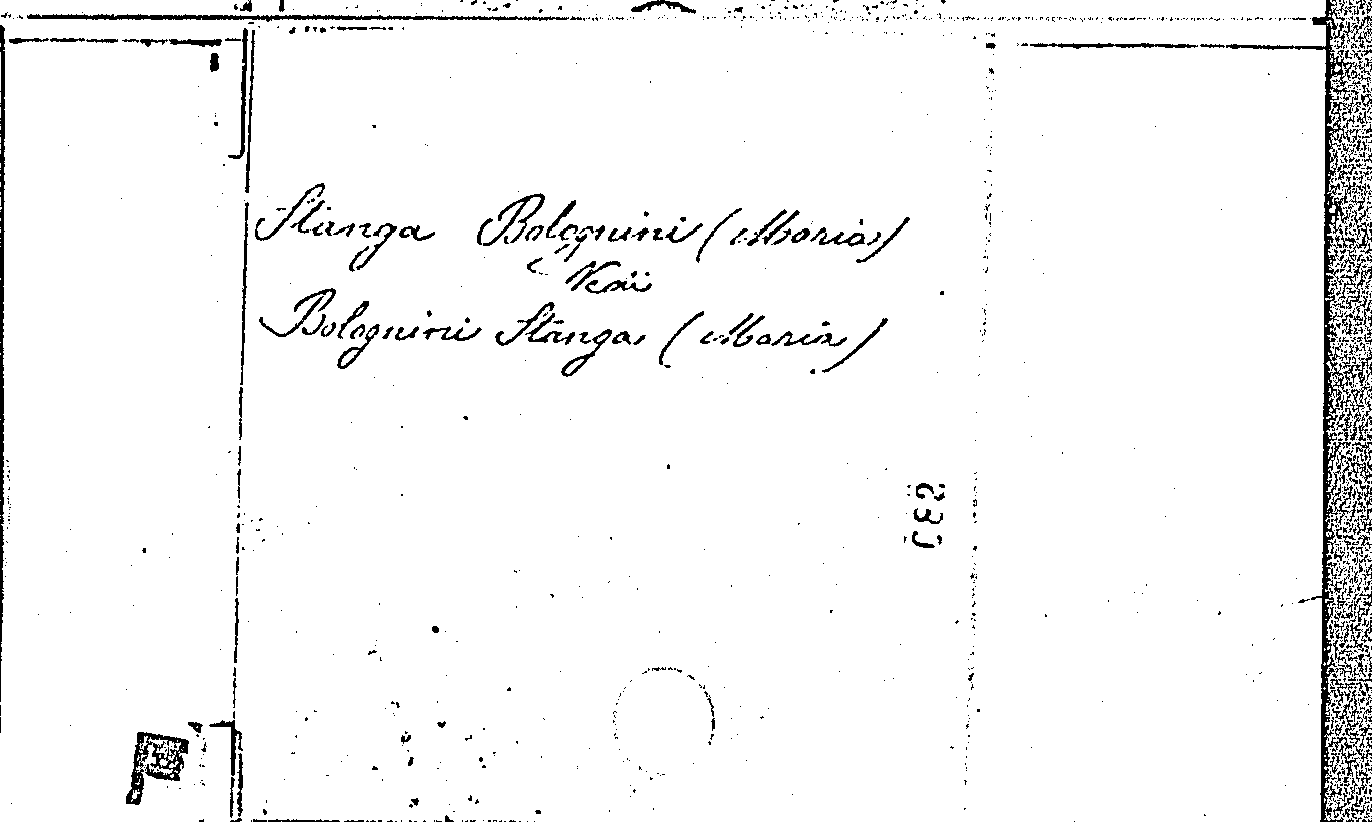 Stanga Bolognini (Maria)
Vedi
Bolognini Stanga (Maria)